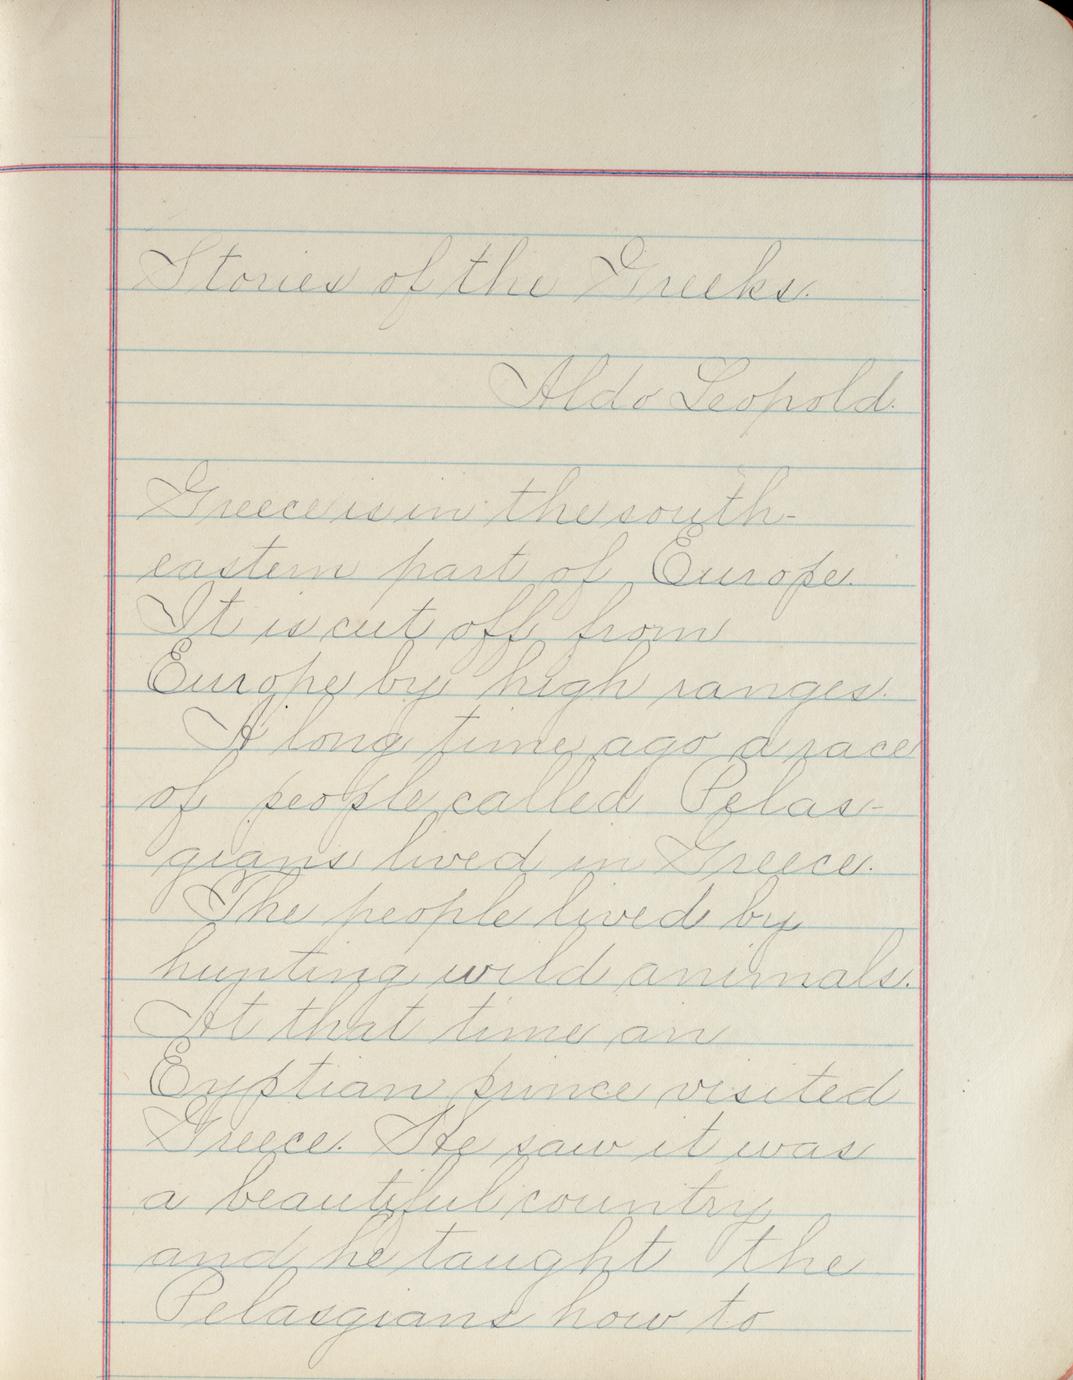 Stories of the Greeks.
Aldo Leopold.
Greece is in the south-
eastern part of Europe.
It is cut off from
Europe by high ranges.
A long time ago a race
of people called Pelas-
gians lived in Greece.
The people lived by
hunting wild animals.
At that time an
Eyptian prince visited
Greece. He saw it was
a beautiful country
and he taught the
Pelasgians how to